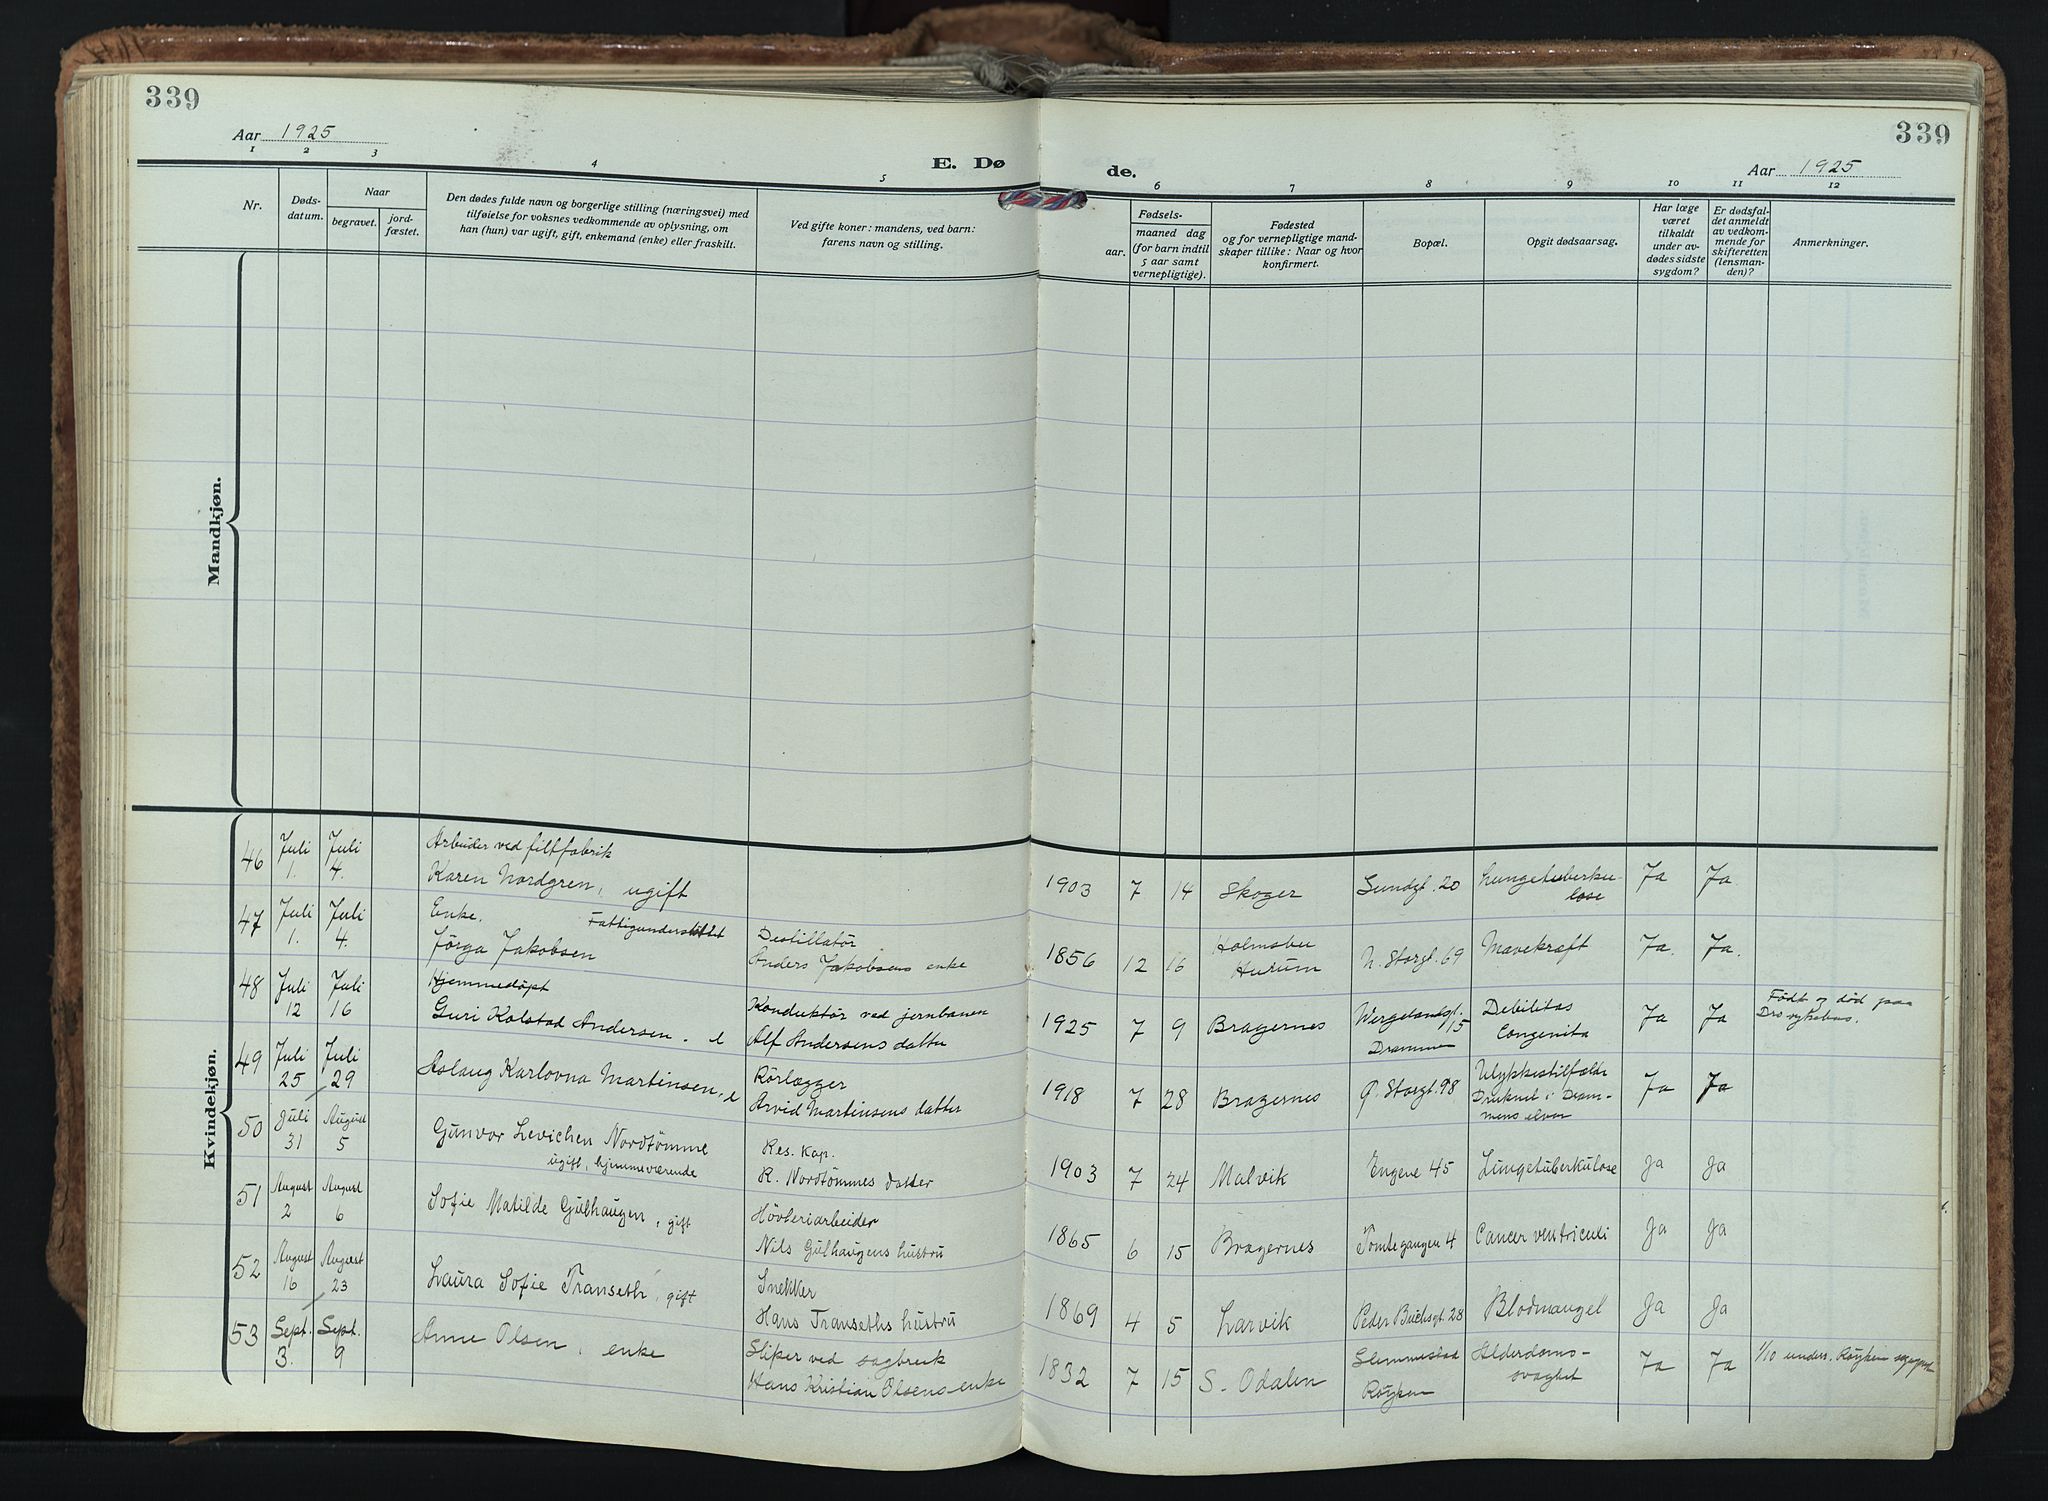 339
339
Aar 1925
E. Dø
de.
Aar 1925
1 2 3 4 5 6 7 8 9 10 11 12
Nr.
Døds-
datum.
Naar
begravet.
jord-
fæstet.
Den dødes fulde navn og borgerlige stilling (næringsvei) med
tilføielse for voksnes vedkommende av oplysning, om
han (hun) var ugift, gift, enkemand (enke) eller fraskilt.
Ved gifte koner: mandens, ved barn:
farens navn og stilling.
Fødsels-
aar.
maaned dag
(for barn indtil
5 aar samt
vernepligtige).
Fødested
og for vernepligtige mand-
skaper tillike: Naar og hvor
konfirmert.
Bopæl.
Opgit dødsaarsag.
Har læge
været
tilkaldt
under av-
dødes sidste
sygdom?
Er dødsfal-
det anmeldt
av vedkom-
mende for
skifteretten
(lensman-
den)?
Anmerkninger.
Mandkjøn.
Kvindekjøn.
46 Juli 1. Juli 4. Arbeider ved filtfabrik
Karen Nordgren, ugift
1903 7 14 Skoger Lundgt. 20 Lungetuberku-
lose Ja Ja
47 Juli 1. Juli 4. Enke. Fattigunderstøttet
Jørga Jakobsen
Destillatør
Anders Jakobsens enke
1856 12 16 Holmsbu
Hurum N. Storgt. 69 Mavekræft Ja. Ja.
48 Juli 12 Juli 16 Hjemmedøpt
Guri Kolstad Andersen. e
Konduktør ved jernbanen
Alf Andersens datter
1925 7 9 Bragernes Wergelandsgt.
15
Drammen Debilitas
Congenita Ja Ja Født og død paa
Dr. sykehus.
49 Juli 25 Juli 29 Aslaug Karlovna Martinsen, e
Rørlægger
Arvid Martinsens datter
1918 7 28 Bragernes Ø. Storgt. 98 Ulykkestilfælde
Druknet i Dram-
mens elven Ja Ja
50 Juli 31 August 5 Gunvor Levichen Nordtømme
ugift, hjemmeværende
Res. Kap.
R. Nordtømmes datter
1903 7 24 Malvik Engene 45 Lungetuberkulose Ja Ja
51 August 2 August 6 Sofie Matilde Gulhaugen, gift
Høvleriarbeider
Nils Gulhaugens hustru
1865 6 15 Bragernes Tomtegangen 4 Cancer ventriculi Ja Ja
52 August 16 August 23 Laura Sofie Transeth, gift
Snekker
Hans Transeths hustru
1869 4 5 Larvik Peder Buchsgt. 28 Blodmangel Ja Ja
53 Sept. 3. Sept. 9 Anne Olsen, enke
Sliper ved sagbruk
Hans Kristian Olsens enke
1832 7 15 S. Odalen Slemmestad
Røyken Alderdoms-
svaghet Ja Ja 1/10 unders. Røyken